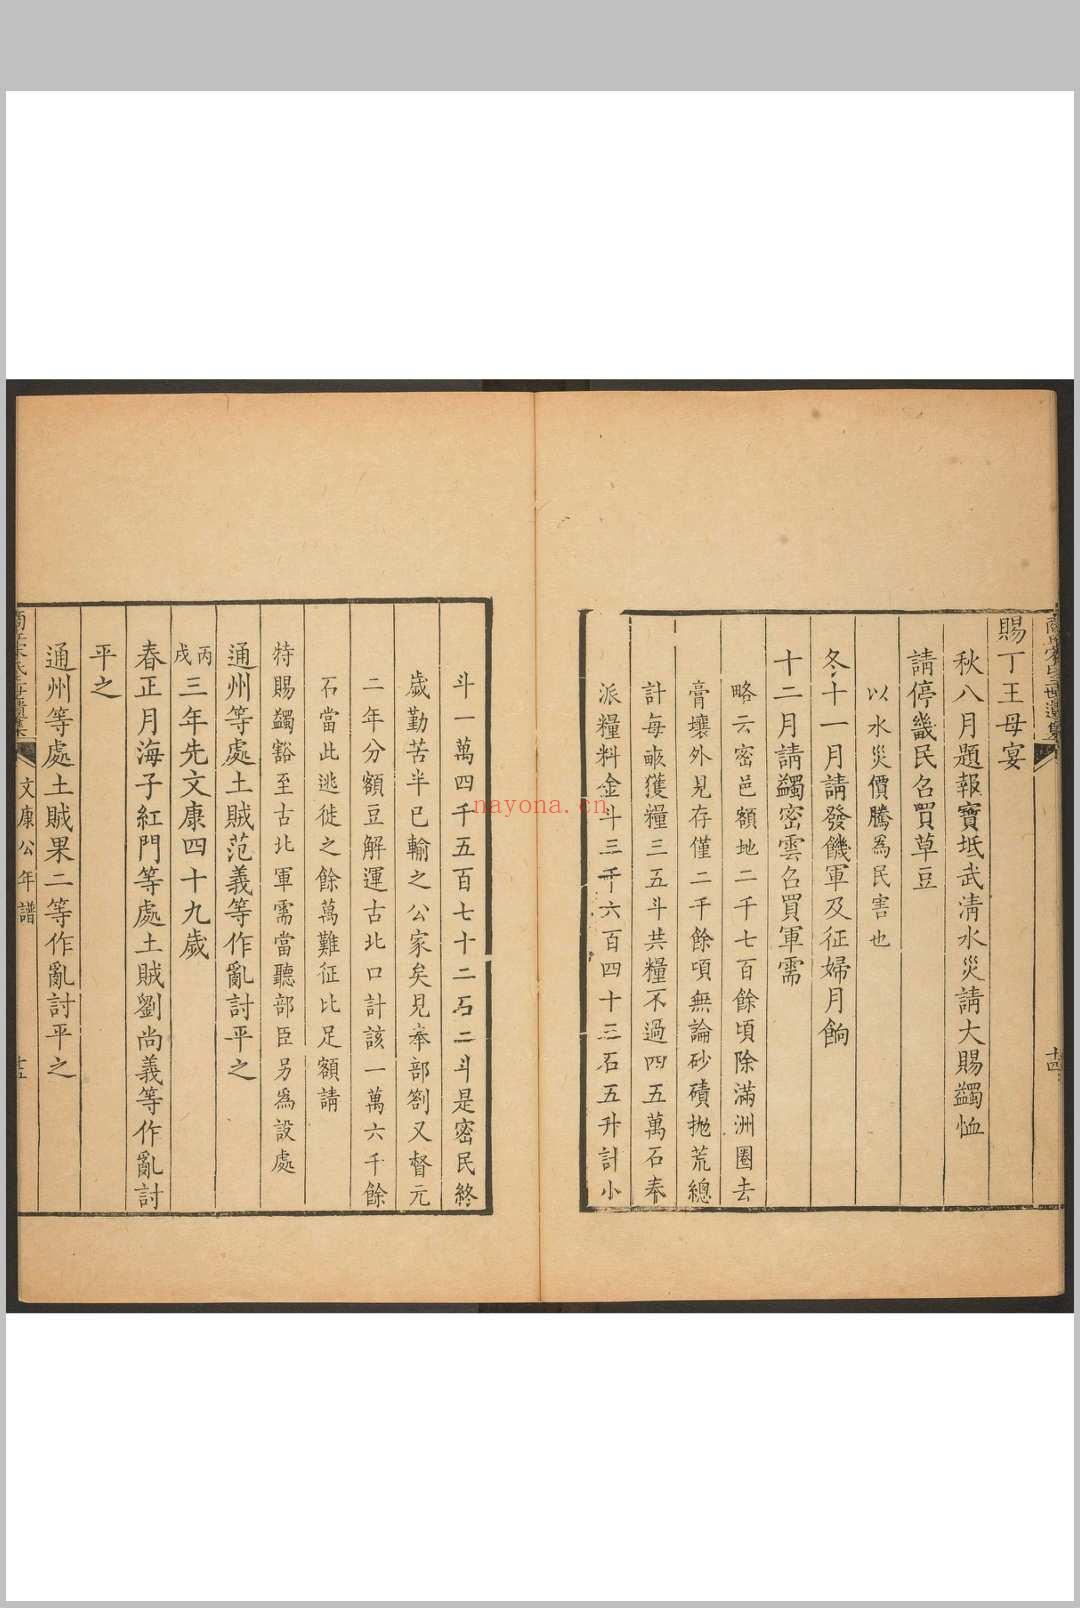 賜丁王母宴
秋八月題報寶坻武清水災請大賜蠲恤
請停畿民召買草豆
以水災價騰為民害也
冬十一月請發饑軍及征婦月餉
十二月請蠲密雲召買軍需
略云密邑額地二千七百餘頃除滿洲圈去
膏壤外見存僅二千餘頃無論砂磧拋荒總
計每畝獲糧三五斗共糧不過四五萬石奉
派糧料金斗三千六百四十三石五升計小
十四
斗一萬四千五百七十二石二斗是密民終
歲勤苦半已輸之公家矣見奉部劄又督元
二年分額豆解運古北口計該一萬六千餘
石當此逃徙之餘萬難征比足額請
特賜蠲豁至古北軍需當聽部臣另為設處
通州等處土賊范義等作亂討平之
丙戌三年先文康四十九歲
春正月海子紅門等處土賊劉尚義等作亂討
平之
通州等處土賊果二等作亂討平之
文康公年譜
十五
nayona.cn